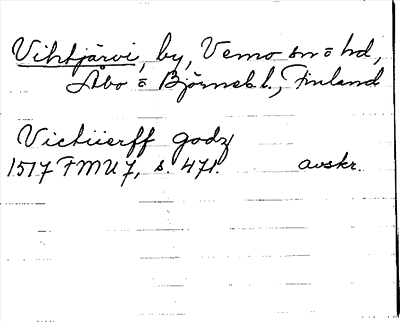 Vihtjärvi, by, Vemo sn = hd,
Åbo = Björneb. l., Finland
Victiierff godz
1517 FMU 7, s. 471. avskr.